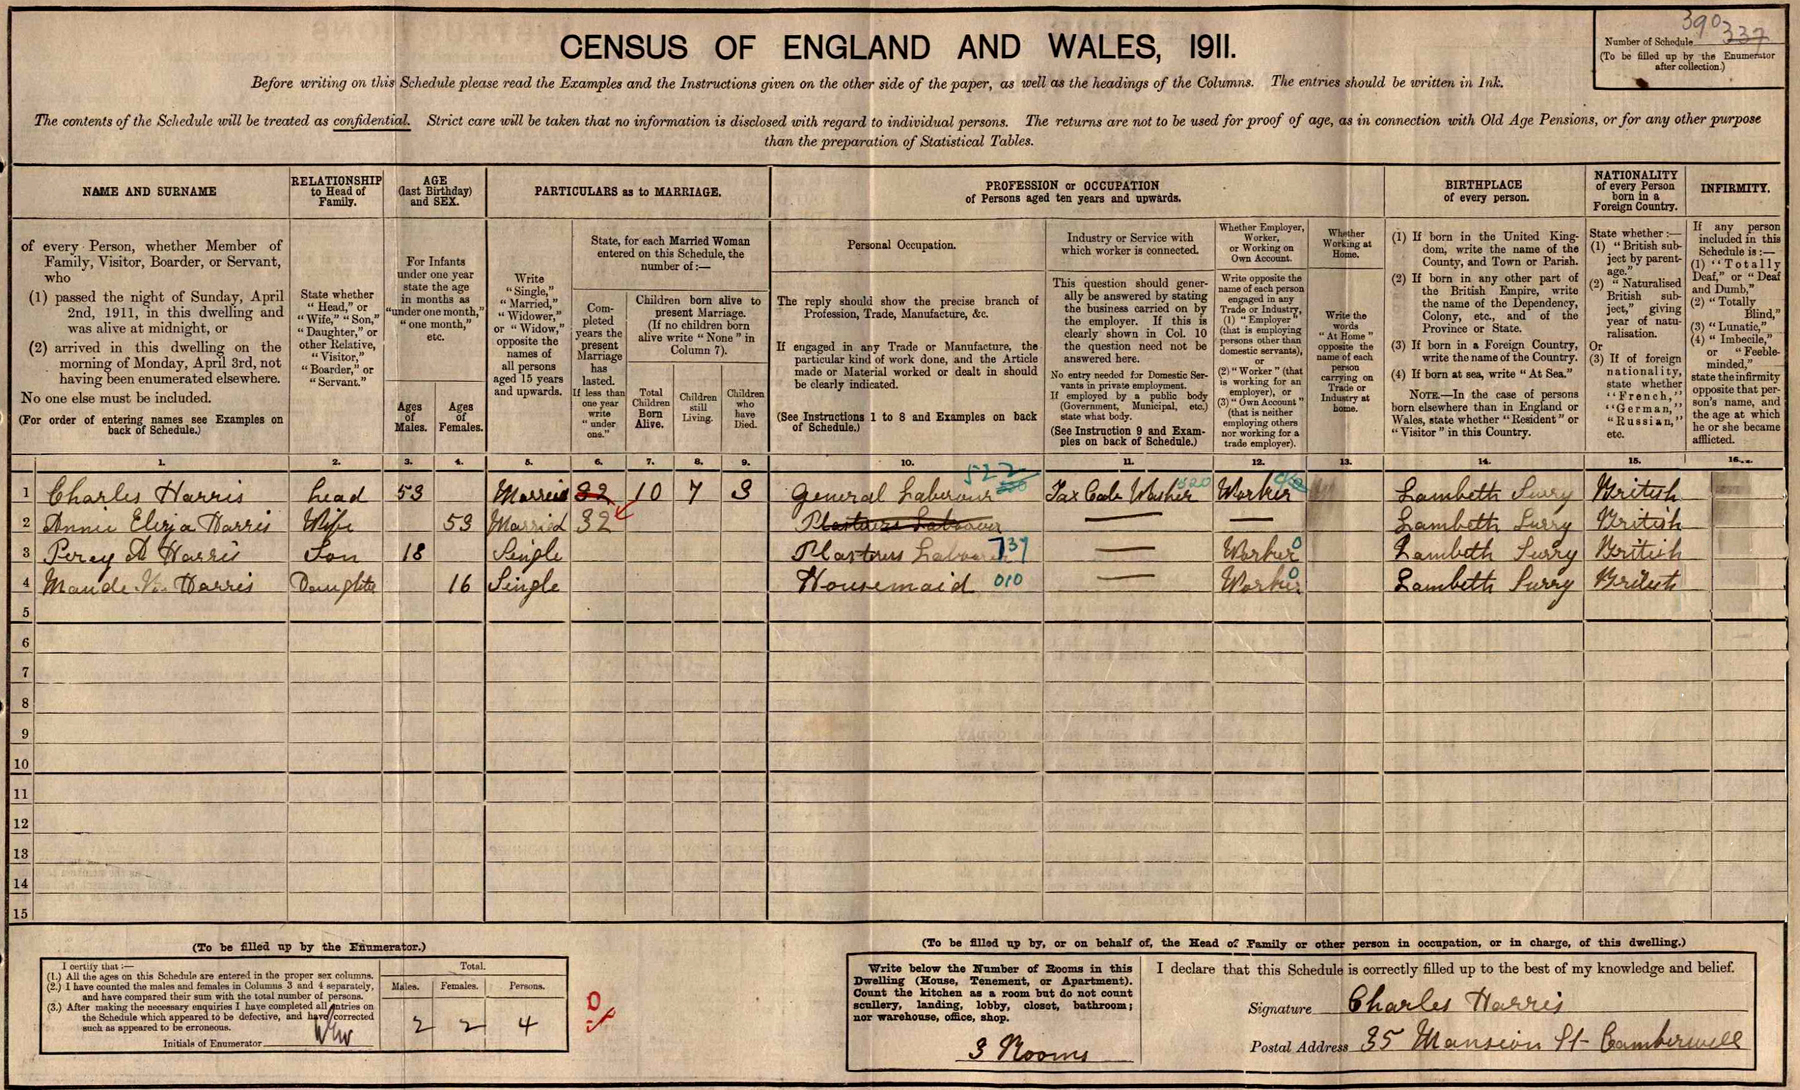 CENSUS OF ENGLAND AND WALES, 1911.
390
Number of Schedule 337
(To be filled up by the Enumerator
after collection.)
Before writing on this Schedule please read the Examples and the Instructions given on the other side of the paper, as well as the headings of the Columns. The entries should be written in Ink.
The contents of the Schedule will be treated as confidential. Strict care will be taken that no information is disclosed with regard to individual persons. The returns are not to be used for proof of age, as in connection with Old Age Pensions, or for any other purpose
than the preparation of Statistical Tables.
NAME AND SURNAME
of every Person, whether Member of
Family, Visitor, Boarder, or Servant,
who
(1) passed the night of Sunday, April
2nd, 1911, in this dwelling and
was alive at midnight, or
(2) arrived in this dwelling on the
morning of Monday, April 3rd, not
having been enumerated elsewhere.
No one else must be included.
(For order of entering names see Examples on
back of Schedule.)
RELATIONSHIP
to Head of
Family.
State whether
"Head," or
"Wife," "Son,"
"Daughter," or
other Relative,
"Visitor,"
"Boarder," or
"Servant."
AGE
(last Birthday)
and SEX.
For Infants
under one year
state the age
in months as
"under one month,"
"one month,"
etc.
Ages
of
Males.
Ages
of
Females.
PARTICULARS as to MARRIAGE.
Write
"Single,"
"Married,"
"Widower,"
or "Widow,"
opposite the
names of
all persons
aged 15 years
and upwards.
State, for each Married Woman
entered on this Schedule, the
number of:—
Com-
pleted
years the
present
Marriage
has
lasted.
If less than
one year
write
"under
one."
Children born alive to
present Marriage.
(If no children born
alive write "None" in
Column 7).
Total
Children
Born
Alive.
Children
still
Living.
Children
who
have
Died.
PROFESSION or OCCUPATION
of Persons aged ten years and upwards.
Personal Occupation.
The reply should show the precise branch of
Profession, Trade, Manufacture, &c.
If engaged in any Trade or Manufacture, the
particular kind of work done, and the Article
made or Material worked or dealt in should
be clearly indicated.
(See Instructions 1 to 8 and Examples on back
of Schedule.)
Industry or Service with
which worker is connected.
This question should gener-
ally be answered by stating
the business carried on by
the employer. If this is
clearly shown in Col. 10
the question need not be
answered here.
No entry needed for Domestic Ser-
vants in private employment.
If employed by a public body
(Government, Municipal, etc.)
state what body.
(See Instruction 9 and Exam-
ples on back of Schedule.)
Whether Employer,
Worker,
or Working on
Own Account.
Write opposite the
name of each person
engaged in any
Trade or Industry,
(1) "Employer"
(that is employing
persons other than
domestic servants),
or
(2) "Worker" (that
is working for an
employer), or
(3) "Own Account"
(that is neither
employing others
nor working for a
trade employer).
Whether
Working at
Home.
Write the
words
"At Home"
opposite the
name of each
person
carrying on
Trade or
Industry at
home.
BIRTHPLACE
of every person.
(1) If born in the United King-
dom, write the name of the
County, and Town or Parish.
(2) If born in any other part of
the British Empire, write
the name of the Dependency,
Colony, etc., and of the
Province or State.
(3) If born in a Foreign Country,
write the name of the Country.
(4) If born at sea, write "At Sea."
NOTE.—In the case of persons
born elsewhere than in England or
Wales, state whether "Resident" or
"Visitor" in this Country.
NATIONALITY
of every Person
born in a
Foreign Country.
State whether:—
(1) "British sub-
ject by parent-
age."
(2) "Naturalised
British sub-
ject," giving
year of natu-
ralisation.
Or
(3) If of foreign
nationality,
state whether
"French,"
"German,"
"Russian,"
etc.
INFIRMITY.
If any person
included in this
Schedule is:—
(1) "Totally
Deaf," or "Deaf
and Dumb,"
(2) "Totally
Blind,"
(3) "Lunatic,"
(4) "Imbecile,"
or "Feeble-
minded,"
state the infirmity
opposite that per-
son's name, and
the age at which
he or she became
afflicted.
1. 2. 3. 4. 5. 6. 7. 8. 9. 10. 11. 12. 13. 14. 15. 16.
1 Charles Harris head 53 Married 32 10 7 3 General Labourer 522 Tax Cab Washer 520 Worker Lambeth Surry British
2 Annie Eliza Harris Wife 53 Married 32 Plasterers Labourer — — Lambeth Surry British
3 Percy A Harris Son 18 Single Plastrers Labourer 737 — Worker 0 Lambeth Surry British
4 Maude Harris Daughter 16 Single Housemaid 010 — Worker 0 Lambeth Surry British
5
6
7
8
9
10
11
12
13
14
15
(To be filled up by the Enumerator.)
I certify that:—
(1.) All the ages on this Schedule are entered in the proper sex columns.
(2.) I have counted the males and females in Columns 3 and 4 separately,
and have compared their sum with the total number of persons.
(3.) After making the necessary enquiries I have completed all entries on
the Schedule which appeared to be defective, and have corrected
such as appeared to be erroneous.
Initials of Enumerator
Total.
Males. Females. Persons.
2 2 4
(To be filled up by, or on behalf of, the Head of Family or other person in occupation, or in charge, of this dwelling.)
Write below the Number of Rooms in this
Dwelling (House, Tenement, or Apartment).
Count the kitchen as a room but do not count
scullery, landing, lobby, closet, bathroom;
nor warehouse, office, shop.
3 Rooms
I declare that this Schedule is correctly filled up to the best of my knowledge and belief.
Signature Charles Harris
Postal Address 35 Mansion St Camberwell